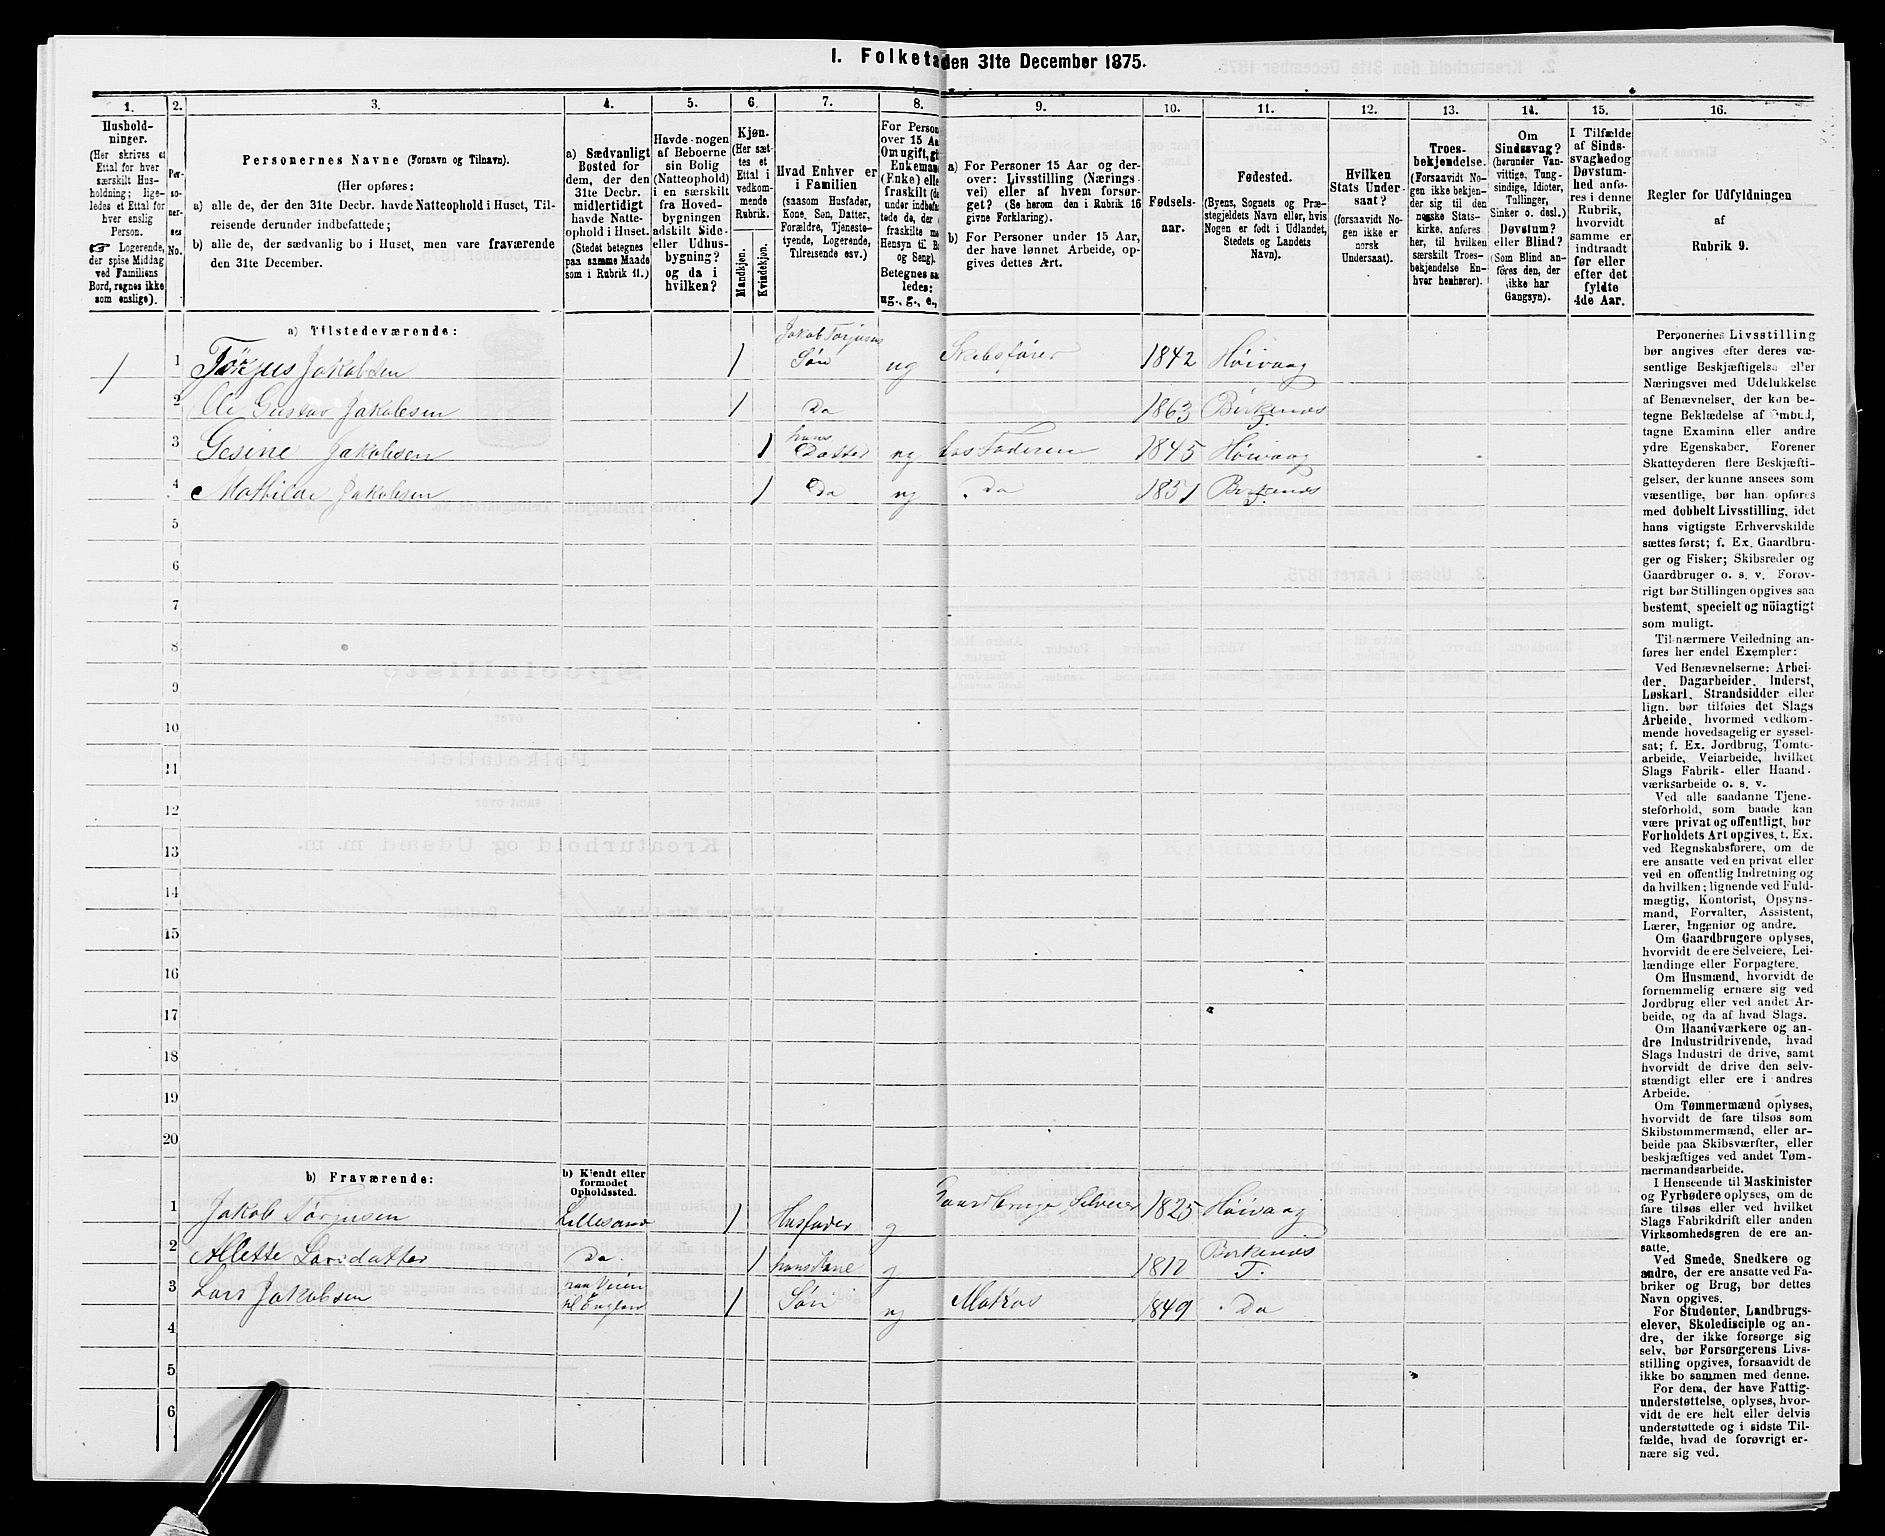 I. Folketa den 31te December 1875.
1. 2. 3. 4. 5. 6. 7. 8. 9. 10. 11. 12. 13. 14. 15. 16.
Hushold-
ninger.
(Her skrives et
Ettal for hver
særskilt Hus-
holdning; lige-
ledes et Ettal for
hver enslig
Person.
Logerende,
der spise Middag
ved Familiens
Bord, regnes ikke
som enslige).
Per-
so-
ner-
nes
No.
Personernes Navne (Fornavn og Tilnavn).
(Her opføres:
a) alle de, der den 31te Decbr. havde Natteophold i Huset, Til-
reisende derunder indbefattede;
b) alle de, der sædvanlig bo i Huset, men vare fraværende
den 31te December.
a) Sædvanligt
Bosted for
dem, der den
31te Decbr.
midlertidigt
havde Natte-
ophold i Huset.
(Stedet betegnes
paa samme Maade
som i Rubrik 11.)
Havde nogen
af Beboerne
sin Bolig
(Natteophold)
i en særskilt
fra Hoved-
bygningen
adskilt Side-
eller Udhus-
bygning?
og da i
hvilken?
Kjøn.
(Her sæt-
tes et
Ettal i
vedkom-
mende
Rubrik.
Mandkjøn.
Kvindekjøn.
Hvad Enhver er
i Familien
(saasom Husfader,
Kone, Søn, Datter,
Forældre, Tjeneste-
tyende, Logerende,
Tilreisende osv.)
For Person
over 15 Aa
Om ugift, gi
Enkema
(Enke) elle
fraskilt (d
under indbefat
tede de, der
fraskilte me
Hensyn til B
og Seng).
Betegnes sa
ledes:
ug., g., e.,
a) For Personer 15 Aar og der-
over: Livsstilling (Nærings-
vei) eller af hvem forsør-
get? (Se herom den i Rubrik 16
givne Forklaring).
b) For Personer under 15 Aar,
der have lønnet Arbeide, op-
gives dettes Art.
Fødsels-
aar.
Fødested.
(Byens, Sognets og Præ-
stegjeldets Navn eller, hvis
Nogen er født i Udlandet,
Stedets og Landets
Navn).
Hvilken
Stats Under-
saat?
(forsaavidt No-
gen ikke er
norsk
Undersaat).
Troes-
bekjendelse.
(Forsaavidt No-
gen ikke bekjen-
der sig til den
norske Stats-
kirke, anføres
her, til hvilken
særskilt Troes-
bekjendelse En-
hver henhører).
Om
Sindssvag?
(herunder Van-
vittige, Tung-
sindige, Idioter,
Tullinger,
Sinker o. desl.)
Døvstum?
eller Blind?
(Som Blind an-
føres den, der
ikke har
Gangsyn).
I Tilfælde
af Sinds-
svaghed og
Døvstum-
hed anfø-
res i denne
Rubrik,
hvorvidt
samme er
indtraadt
før eller
efter det
fyldte
4de Aar.
Regler for Udfyldningen
af
Rubrik 9.
a) Tilstedeværende:
1 1 Tørjus Jakobsen 1 Jakob Torjusens Søn ug Skibsfører 1842 Høivaag
2 Ole Gustav Jakobsen 1 Do 1863 Birkenæs
3 Gesine Jakobsen 1 hans Datter ug hos Faderen 1845 Høivaag
4 Mathilde Jakobsen 1 Do ug Do 1851 Birkenæs
5
6
7
8
9
10
11
12
13
14
15
16
17
18
19
20
b) Fraværende:
b) Kjendt eller
formodet
Opholdssted.
1 Jakob Tørjusen Lillesand 1 Husfader g Gaardbruger Selveier 1825 Høivaag
2 Allette Larsdatter Do. 1 hans Kone g Birkenæs
3 Lars Jakobsen paa Veien til England 1 Søn ug Matros 1849 Do
4
5
6
Personernes Livsstilling
bør angives efter deres væ-
sentlige Beskjæftigelse eller
Næringsvei med Udelukkelse
af Benævnelser, der kun be-
tegne Beklædelse af Ombud,
tagne Examina eller andre
ydre Egenskaber. Forener
Skatteyderen flere Beskjæfti-
gelser, der kunne ansees som
væsentlige, bør han opføres
med dobbelt Livsstilling, idet
hans vigtigste Erhvervskilde
sættes først; f. Ex. Gaardbru-
ger og Fisker; Skibsreder og
Gaardbruger o. s. v. Forøv-
rigt bør Stillingen opgives saa
bestemt, specielt og nöiagtigt
som muligt.
Til nærmere Veiledning an-
føres her endel Exempler:
Ved Benævnelserne: Arbei-
der, Dagarbeider, Inderst,
Løskarl, Strandsidder eller
lign. bør tilføies det Slags
Arbeide, hvormed vedkom-
mende hovedsagelig er syssel-
sat; f. Ex. Jordbrug, Tomte-
arbeide, Veiarbeide, hvilket
Slags Fabrik- eller Haand-
værksarbeide o. s. v.
Ved alle saadanne Tjene-
steforhold, som baade kan
være privat og offentligt, bør
Forholdets Art opgives, t. Ex.
ved Regnskabsførere, om de
ere ansatte ved en privat eller
ved en offentlig Indretning og
da hvilken; lignende ved Fuld-
mægtig, Kontorist, Opsyns-
mand, Forvalter, Assistent,
Lærer, Ingeniør og andre.
Om Gaardbrugere oplyses,
hvorvidt de ere Selveiere, Lei-
lændinge eller Forpagtere.
Om Husmænd, hvorvidt de
fornemmelig ernære sig ved
Jordbrug eller ved andet Ar-
beide, og da af hvad Slags.
Om Haandværkere og an-
dre Industridrivende, hvad
Slags Industri de drive, samt
hvorvidt de drive den selv-
stændigt eller ere i andres
Arbeide.
Om Tømmermænd oplyses,
hvorvidt de fare tilsøs som
Skibstømmermænd, eller ar-
beide paa Skibsværfter, eller
beskjæftiges ved andet Tøm-
mermandsarbeide.
I Henseende til Maskinister
og Fyrbødere oplyses, om de
fare tilsøs eller ved hvilket
Slags Fabrikdrift eller anden
Virksomhedsgren de ere an-
satte.
Ved Smede, Snedkere og
andre, der ere ansatte ved Fa-
briker og Brug, bør dettes
Navn opgives.
For Studenter, Landbrugs-
elever, Skoledisciple og an-
dre, der ikke forsørge sig
selv, bør Forsørgerens Livs-
stilling opgives, forsaavidt de
ikke bo sammen med denne.
For dem, der have Fattig-
understøttelse, oplyses, hvor-
vidt de ere helt eller delvis
understøttede og i sidste Til-
fælde, hvad de forøvrigt er-
nære sig ved.